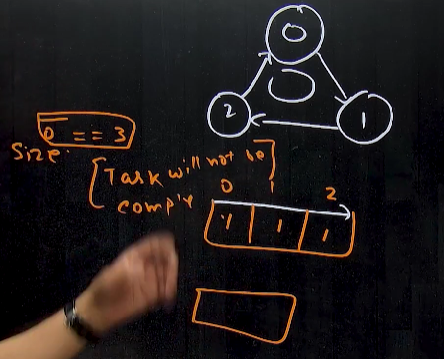 0
2 1
0 == 3
Size
[Task will not be]
comp
0 1 2
1 1 1